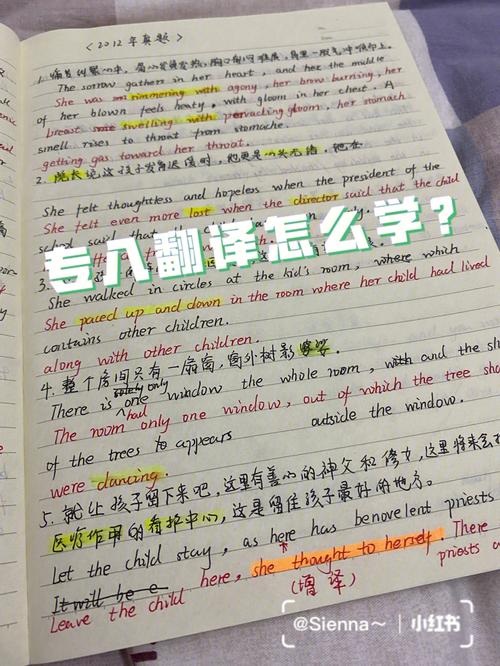 <2012年真题>
1. 痛苦纠聚心中,眉心发烧发热,胸口郁闷难展,胃里一股气冲喉而上。
The sorrow gathers in her heart, and her the middle
She was simmering with agony, her brow burning, her
of her blown feels heaty, with gloom in her chest. A
breast swelling with pervacking gloom, her stomach
smell rises to throat from stomache.
getting gas toward her throat.
2. 院长说这孩子发育迟缓时,她更是心头无绪,她在
She felt thoughtless and hopeless when the president of the
She felt even more lost when the director said that the child
school said that the
专八翻译怎么学?
3.
She walked in circles at the kid's room, where which
She paced up and down in the room where her child had lived
contains other children.
along with other children.
4. 整个房间只有一扇窗,窗外树影婆娑。
There is only one window the whole room, with and the sha
The room had only one window, out of which the tree sha
of the trees to appears outside the window.
were dancing.
5. 就让孩子留下来吧,这里有善心的神父和修女,这里将来会
医师作用的看护中心,这是留住孩子最好的地方。
Let the child stay, as here has benovelent priests
It will be a
Leave the child here, she thought to herself. There
priests a
(增译)
@Sienna~ 小红书